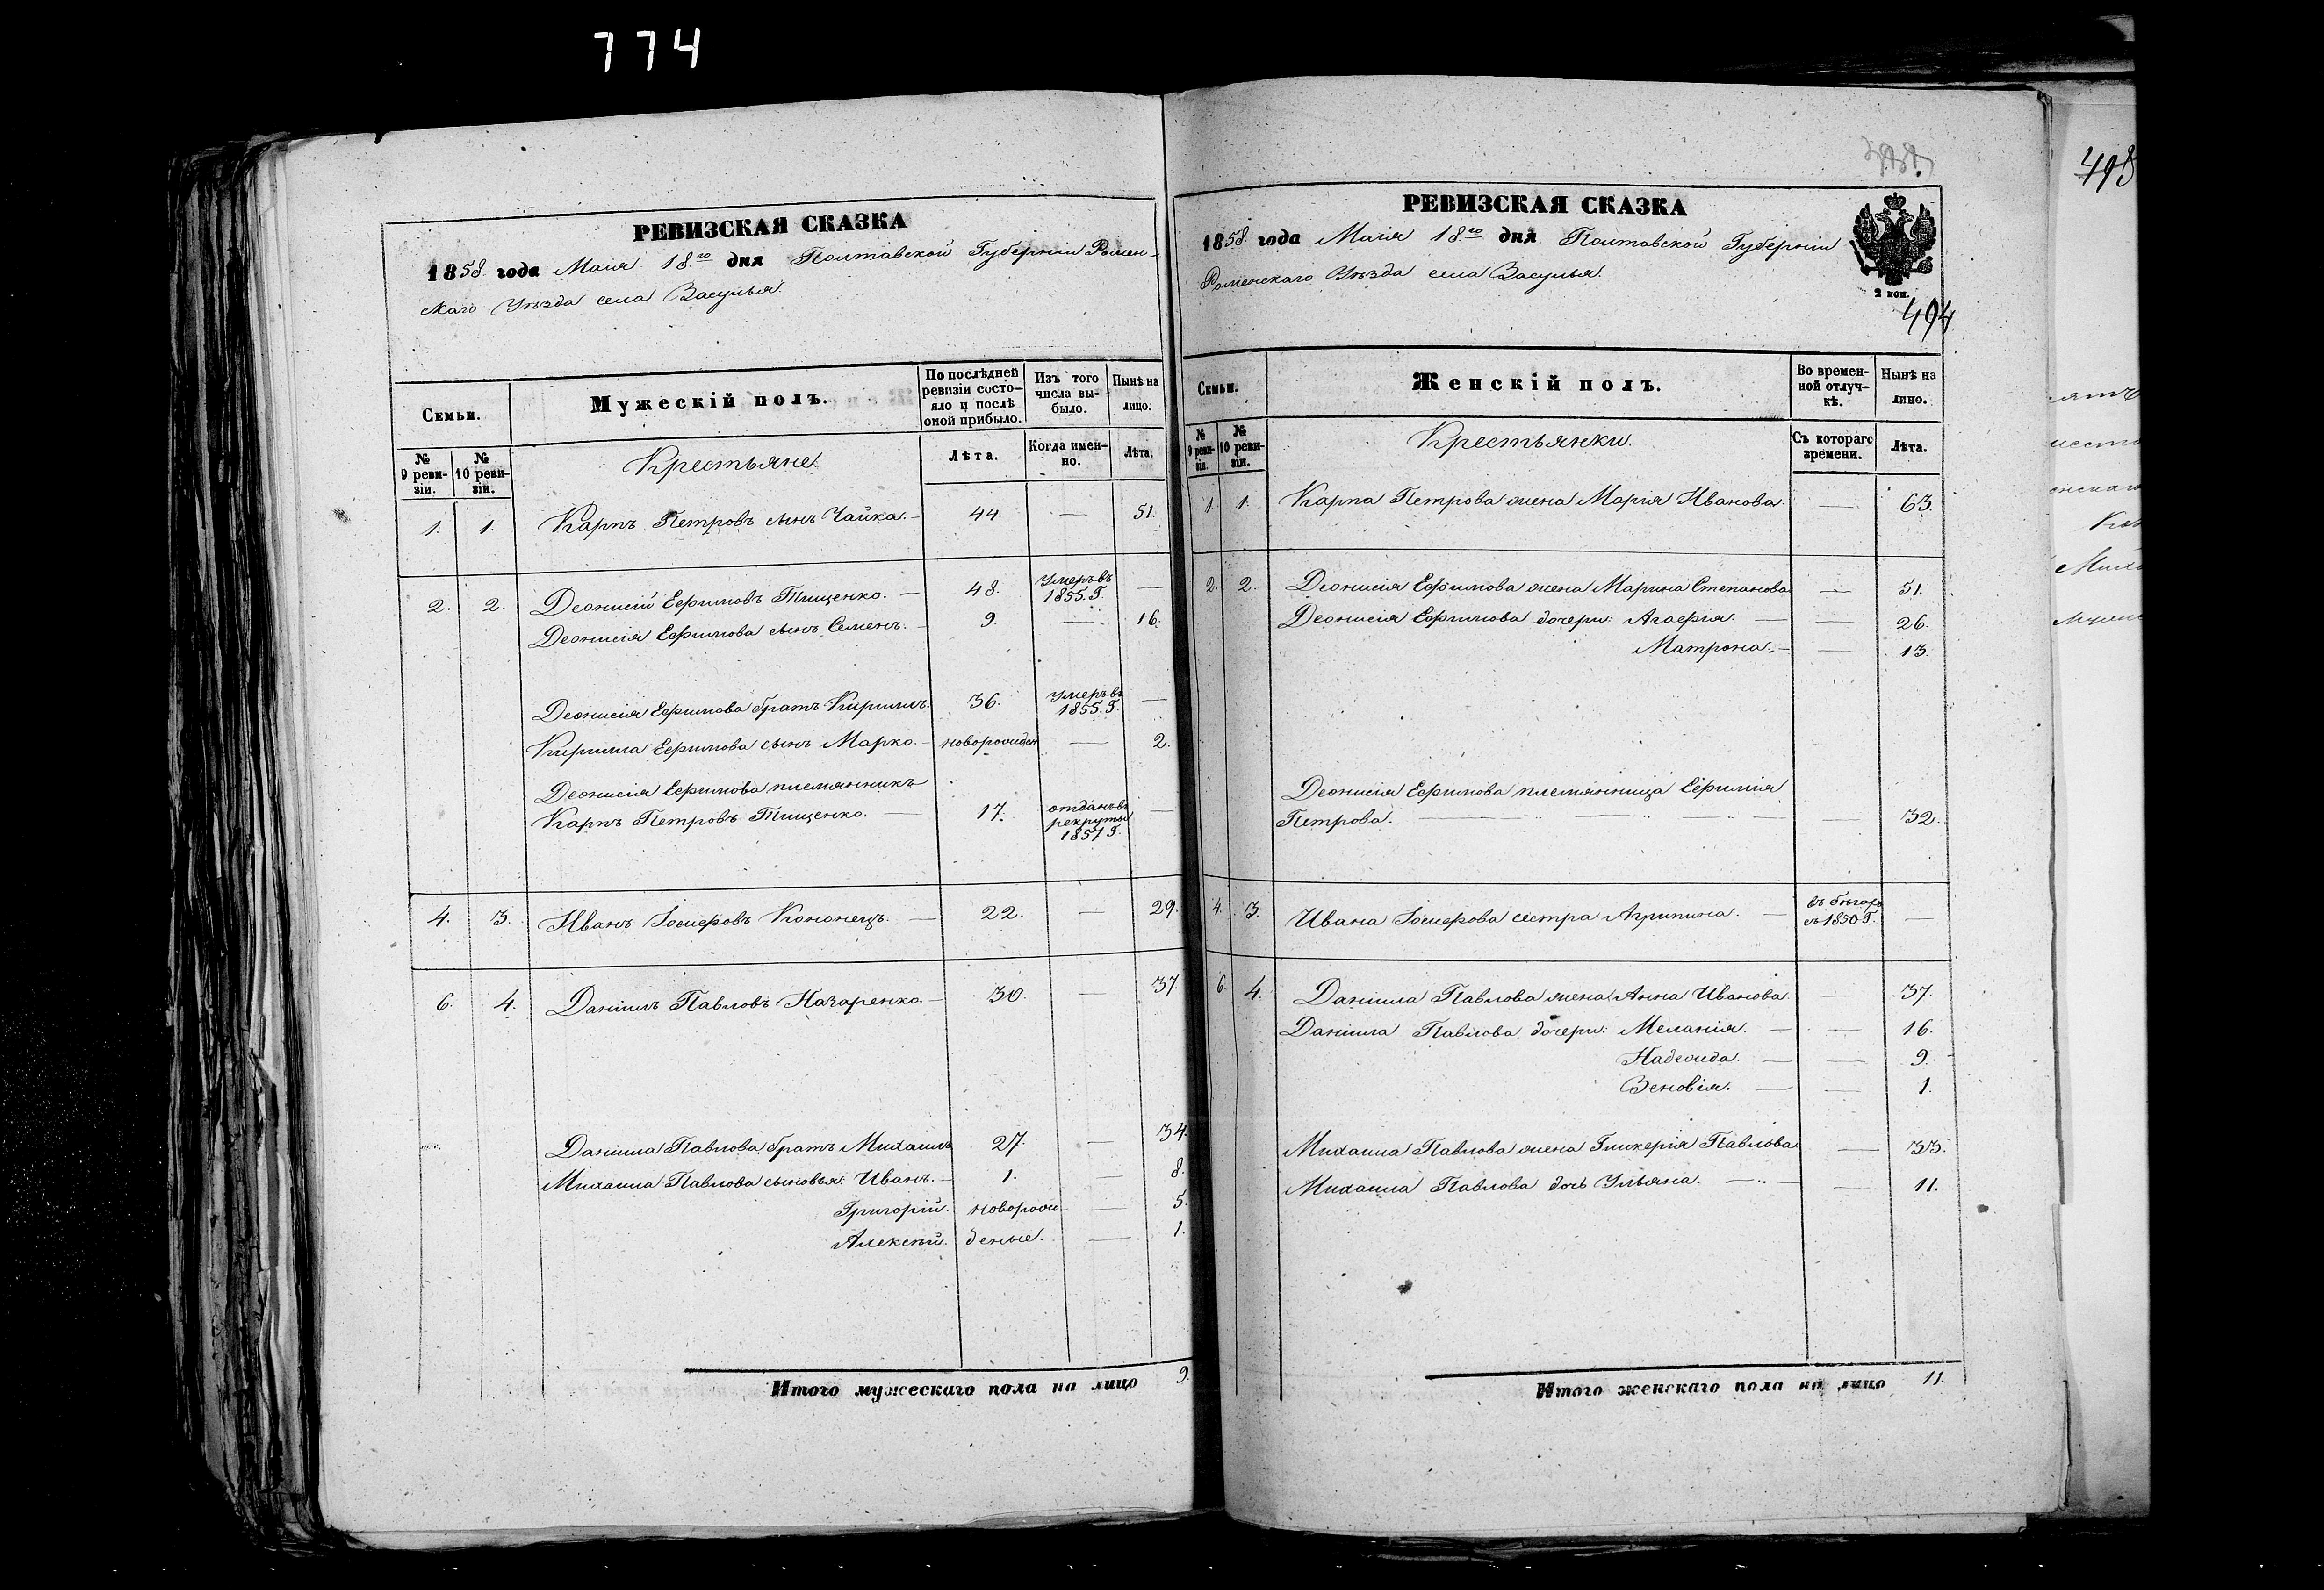 774
РЕВИЗСКАЯ СКАЗКА
1858 года Маія 18го дня Полтавской Губерніи Ромен-
скаго Уѣзда села Засулья.
Семьи.
Мужескій полъ.
По послѣдней ревизіи состо-
яло и послѣ оной прибыло.
Изъ того числа вы-
было.
Нынѣ на лицо.
№ 9 реви-
зіи.
№ 10 реви-
зіи.
Крестьяне
Лѣта.
Когда имен-
но.
Лѣта.
1. 1. Карпъ Петровъ сынъ Чайка. 44. — 51.
2. 2. Деонисій Ефимовъ Тищенко. — 48. Умеръ въ 1855. Г. —
Деонисія Ефимова сынъ Семенъ. 9. — 16.
Деонисія Ефимова братъ Кирилъ. 36. Умеръ въ 1855. Г. —
Кирила Ефимова сынъ Марко. — новорожден — 2.
Деонисія Ефимова племянникъ
Карпъ Петровъ Тищенко. — 17. отданъ въ рекруты 1851 Г. —
4. 3. Иванъ Іосифовъ Кононецъ. — 22. — 29.
6. 4. Даніилъ Павловъ Назаренко. — 30. — 37.
Даніила Павлова братъ Михаилъ 27. — 34.
Михаила Павлова сыновья: Иванъ. — 1. — 8.
Григорій. новорож- — 5.
Алексѣй. деные. — 1.
Итого мужескаго пола на лицо 9.
РЕВИЗСКАЯ СКАЗКА
1858 года Маія 18го дня Полтавской Губерніи
Роменскаго Уѣзда села Засулья.
2 коп.
494
Семьи.
Женскій полъ.
Во времен-
ной отлуч-
кѣ.
Нынѣ на лицо.
№ 9 реви-
зіи.
№ 10 реви-
зіи.
Крестьянки.
Съ котораго времени.
Лѣта.
1. 1. Карпа Петрова жена Марія Иванова. — 63.
2. 2. Деонисія Ефимова жена Марина Степанова — 51.
Деонисія Ефимова дочери: Агафія. — — 26.
Матрона. — — 13.
Деонисія Ефимова племянница Ефимія
Петрова. — — 32.
4. 3. Ивана Іосифова сестра Агрипина. — въ бѣгахъ съ 1850 Г. —
6. 4. Даніила Павлова жена Анна Иванова. — 37.
Даніила Павлова дочери: Меланія. — — 16.
Надежда. — — 9.
Зеновія. — — 1.
Михаила Павлова жена Гликерія Павлова — 33.
Михаила Павлова дочь Ульяна. — — 11.
Итого женскаго пола на лицо 11.
495